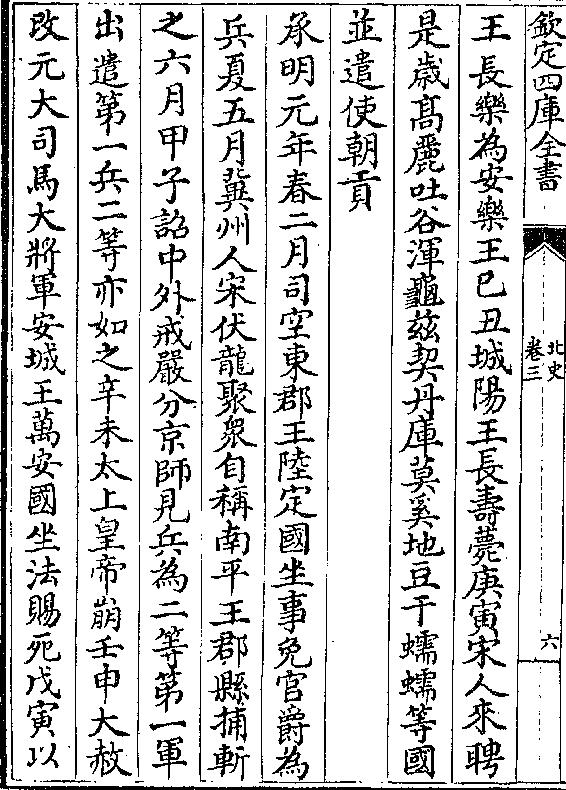 欽定四庫全書
北史
卷三
六
王長樂為安樂王巳丑城陽王長壽薨庚寅宋人來聘
是歲髙麗吐谷渾龜茲契丹庫莫奚地豆干蠕蠕等國
並遣使朝貢
承明元年春二月司空東郡王陸定國坐事免官爵為
兵夏五月冀州人宋伏龍聚衆自稱南平王郡縣捕斬
之六月甲子詔中外戒嚴分京師見兵為二等第一軍
出遣第一兵二等亦如之辛未太上皇帝崩壬申大赦
改元大司馬大將軍安城王萬安國坐法賜死戊寅以